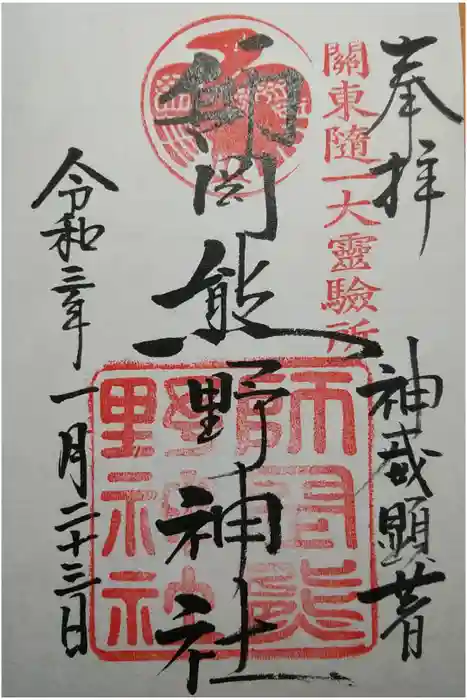 奉拝
關東随一大靈驗所
神威顕著
師岡熊野神社
師岡熊野神社
令和三年一月二十三日